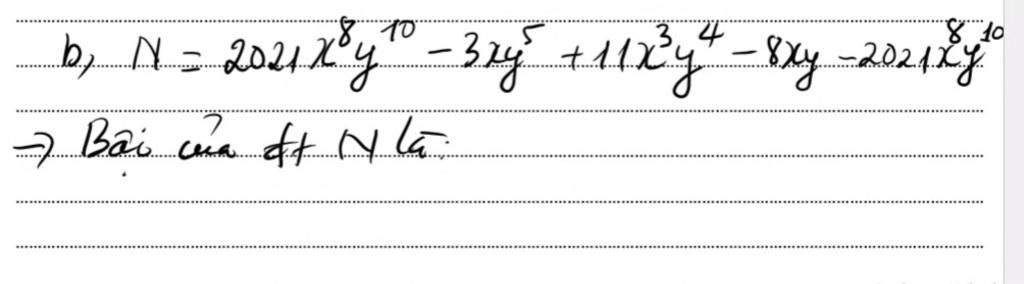 b, N = 2021x⁸y¹⁰ - 3xy⁵ + 11x³y⁴ - 8xy - 2021x⁸y¹⁰
→ Bậc của đt N là: